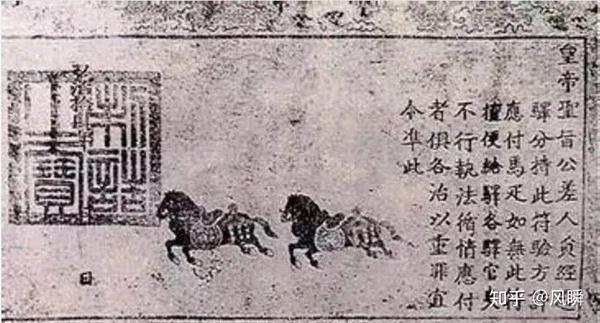 皇帝聖旨公差人員經過
驛分持此符驗方許
應付馬疋如無此符
擅便給驛各驛官吏
不行執法循情應付
者俱各治以重罪宜
令准此
制誥之寶
日
知乎 @风瞬